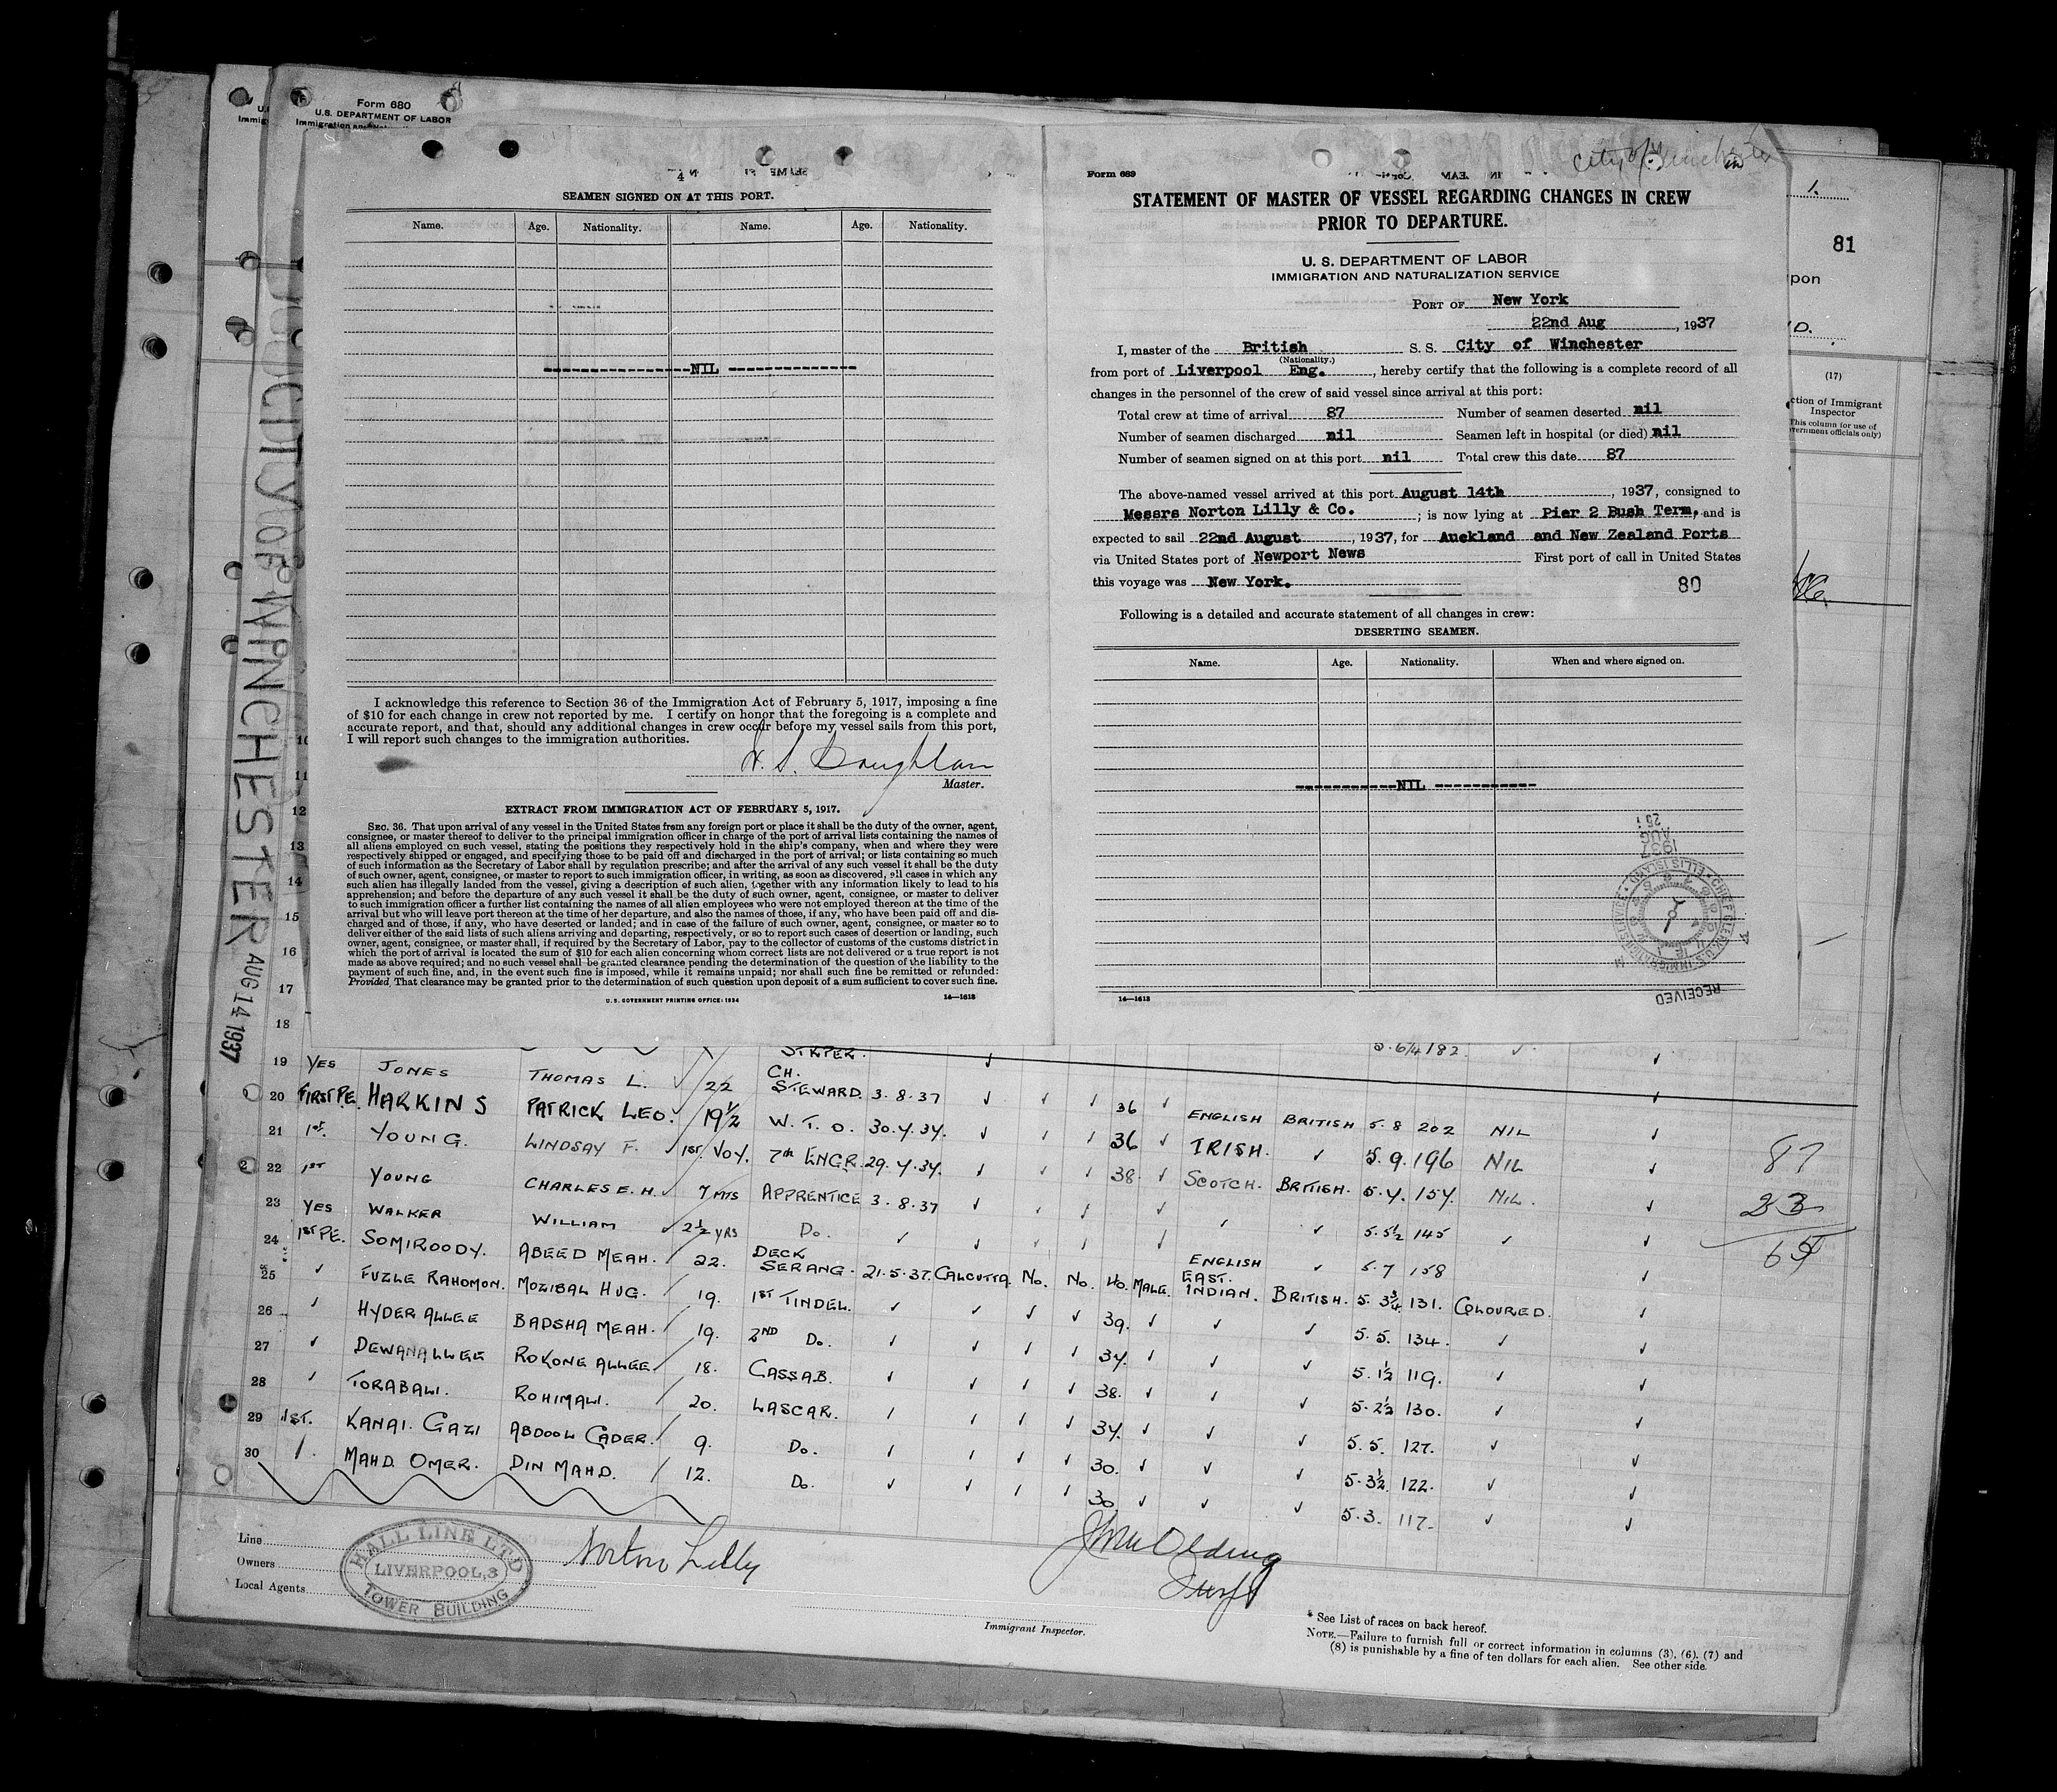 Form 680
U.S. DEPARTMENT OF LABOR
SEAMEN SIGNED ON AT THIS PORT.
Name. Age. Nationality. Name. Age. Nationality.
NIL
I acknowledge this reference to Section 36 of the Immigration Act of February 5, 1917, imposing a fine
of $10 for each change in crew not reported by me. I certify on honor that the foregoing is a complete and
accurate report, and that, should any additional changes in crew occur before my vessel sails from this port,
I will report such changes to the immigration authorities.
Master.
EXTRACT FROM IMMIGRATION ACT OF FEBRUARY 5, 1917.
SEC. 36. That upon arrival of any vessel in the United States from any foreign port or place it shall be the duty of the owner, agent,
consignee, or master thereof to deliver to the principal immigration officer in charge of the port of arrival lists containing the names of
all aliens employed on such vessel, stating the positions they respectively hold in the ship's company, when and where they were
respectively shipped or engaged, and specifying those to be paid off and discharged in the port of arrival; or lists containing so much
of such information as the Secretary of Labor shall by regulation prescribe; and after the arrival of any such vessel it shall be the duty
of such owner, agent, consignee, or master to report to such immigration officer, in writing, as soon as discovered, all cases in which any
such alien has illegally landed from the vessel, giving a description of such alien, together with any information likely to lead to his
apprehension; and before the departure of any such vessel it shall be the duty of such owner, agent, consignee, or master to deliver
to such immigration officer a further list containing the names of all alien employees who were not employed thereon at the time of the
arrival but who will leave port thereon at the time of her departure, and also the names of those, if any, who have been paid off and dis-
charged and of those, if any, who have deserted or landed; and in case of the failure of such owner, agent, consignee, or master so to
deliver either of the said lists of such aliens arriving and departing, respectively, or so to report such cases of desertion or landing, such
owner, agent, consignee, or master shall, if required by the Secretary of Labor, pay to the collector of customs of the customs district in
which the port of arrival is located the sum of $10 for each alien concerning whom correct lists are not delivered or a true report is not
made as above required; and no such vessel shall be granted clearance pending the determination of the question of the liability to the
payment of such fine, and, in the event such fine is imposed, while it remains unpaid; nor shall such fine be remitted or refunded:
Provided, That clearance may be granted prior to the determination of such question upon deposit of a sum sufficient to cover such fine.
U. S. GOVERNMENT PRINTING OFFICE: 1934 14—1613
City of Winchester
Form 689
STATEMENT OF MASTER OF VESSEL REGARDING CHANGES IN CREW
PRIOR TO DEPARTURE.
U. S. DEPARTMENT OF LABOR
IMMIGRATION AND NATURALIZATION SERVICE
PORT OF New York
22nd Aug , 1937
I, master of the British S. S. City of Winchester
(Nationality.)
from port of Liverpool Eng. , hereby certify that the following is a complete record of all
changes in the personnel of the crew of said vessel since arrival at this port:
Total crew at time of arrival 87 Number of seamen deserted nil
Number of seamen discharged nil Seamen left in hospital (or died) nil
Number of seamen signed on at this port nil Total crew this date 87
The above-named vessel arrived at this port August 14th , 1937, consigned to
Messrs Norton Lilly & Co. ; is now lying at Pier 2 Bush Term, and is
expected to sail 22nd August , 1937, for Auckland and New Zealand Ports
via United States port of Newport News First port of call in United States
this voyage was New York.
80
Following is a detailed and accurate statement of all changes in crew:
DESERTING SEAMEN.
Name. Age. Nationality. When and where signed on.
NIL
14—1613
RECEIVED
1937
AUG
81
(17)
Inspector
CITY OF WINCHESTER AUG 14 1937
10
11
12
13
14
15
16
17
18
5.6¼ 182
19 YES JONES THOMAS L. 22 CH. STEWARD 3.8.37 36 ENGLISH BRITISH 5.8 202 NIL
20 FIRST PE. HARKINS PATRICK LEO. 19½ W.T.O. 30.7.37. 36 IRISH. 5.9. 196 NIL
21 1st. YOUNG. LINDSAY F. 1st. VOY. 7th ENGR. 29.7.37. 38. SCOTCH. BRITISH. 5.7. 157. NIL.
22 1st YOUNG CHARLES E. H. 7 MTS APPRENTICE 3.8.37 5.5½ 145
23 YES WALKER WILLIAM 2½ YRS Do. ENGLISH 5.7 158
24 1st PE. SOMIROODY. ABEED MEAH. 22. DECK SERANG. 21.5.37. CALCUTTA. No. No. 40. MALE. EAST. INDIAN. BRITISH. 5.3¾ 131. COLOURED.
25 FUZLE RAHOMON. MOZIBAL HUG. 19. 1ST TINDEL. 39. 5.5. 134.
26 HYDER ALLEE BADSHA MEAH. 19. 2ND Do. 37. 5.½ 119.
27 DEWANALLEE ROKONE ALLEE 18. CASSAB. 38. 5.2½ 130.
28 TORABALI. ROHIMALI. 20. LASCAR. 37. 5.5. 127.
29 1ST. KANAI. GAZI ABDOOL CADER. 9. Do. 30. 5.3½ 122.
30 MAHD. OMER. DIN MAHD. 12. Do. 30 5.3. 117.
87
Line
Owners
Local Agents
HALL LINE LTD
LIVERPOOL, 3
TOWER BUILDING
Norton Lilly
Immigrant Inspector.
* See List of races on back hereof.
NOTE.—Failure to furnish full or correct information in columns (3), (6), (7) and
(8) is punishable by a fine of ten dollars for each alien. See other side.